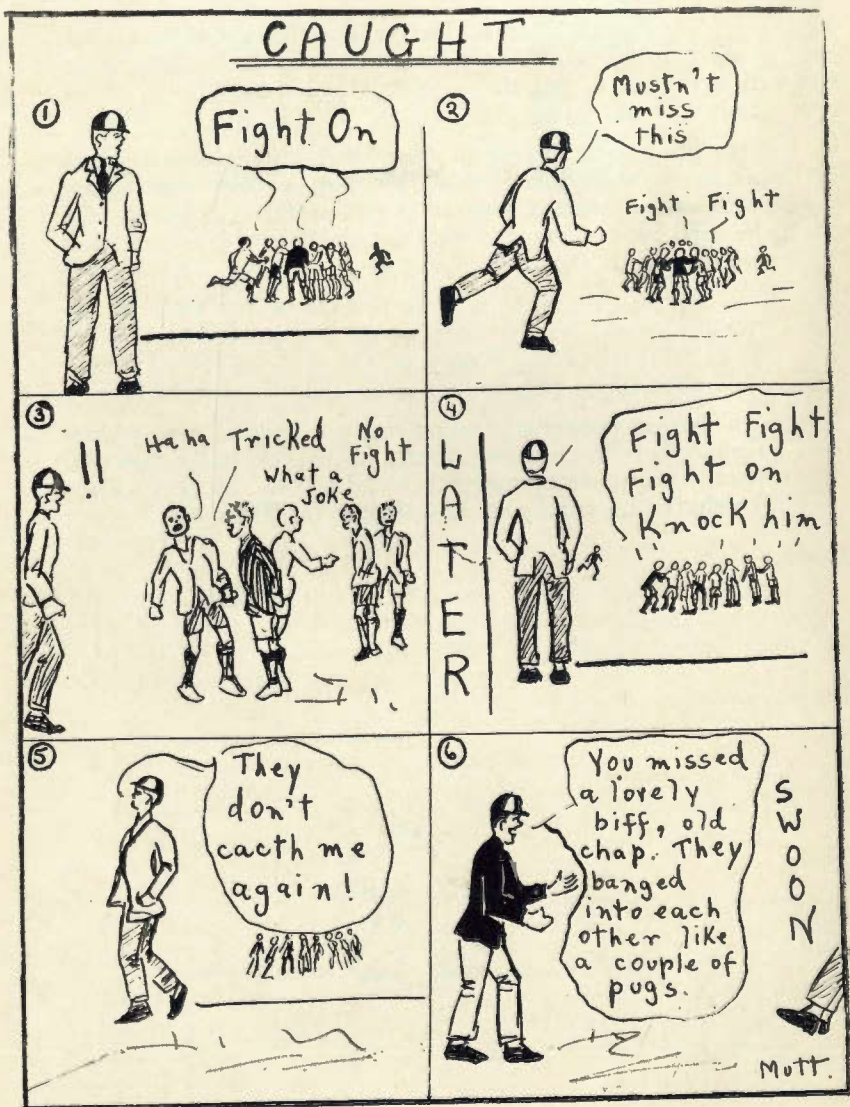 CAUGHT
①
Fight On
②
Mustn't
miss
this
Fight Fight
③
!!
Ha ha
Tricked
What a
Joke
No
Fight
④
LATER
Fight Fight
Fight on
Knock him
⑤
They
don't
cacth me
again!
⑥
You missed
a lovely
biff, old
chap. They
banged
into each
other like
a couple of
pugs.
SWOON
Mutt.